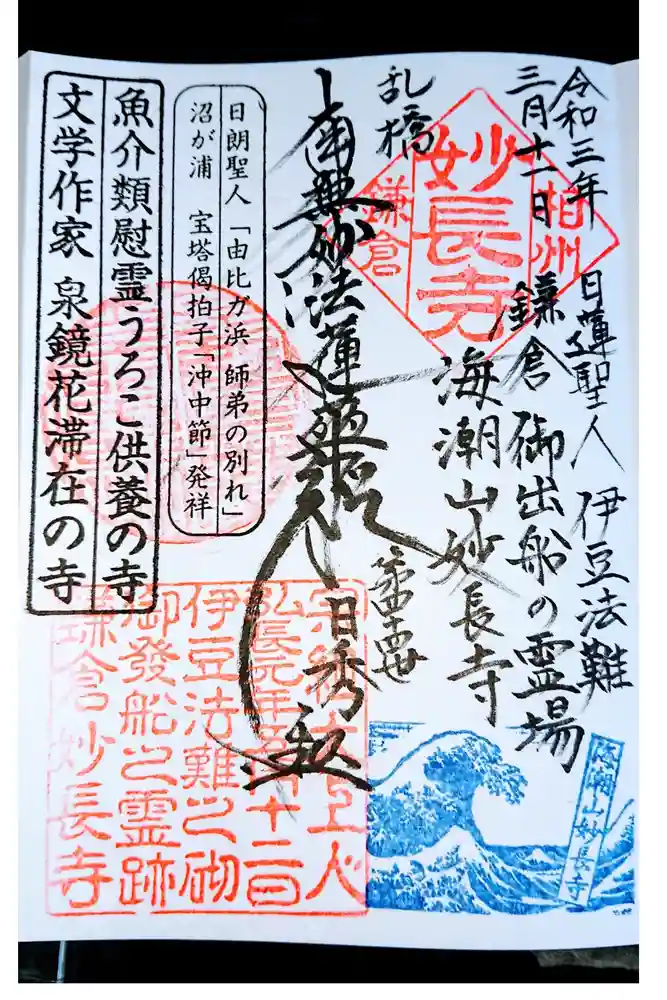 令和三年
三月十一日
相州
妙長寺
鎌倉
乱橋
日蓮聖人 伊豆法難
鎌倉 御出船の霊場
海潮山妙長寺
南無妙法蓮華経
第四十四世
日秀
日朗聖人「由比ガ浜 師弟の別れ」
沼が浦 宝塔偈拍子「沖中節」発祥
魚介類慰霊うろこ供養の寺
文学作家 泉鏡花滞在の寺
弘長元年五月十二日
伊豆法難之砌
御發船之霊跡
鎌倉妙長寺
海潮山妙長寺